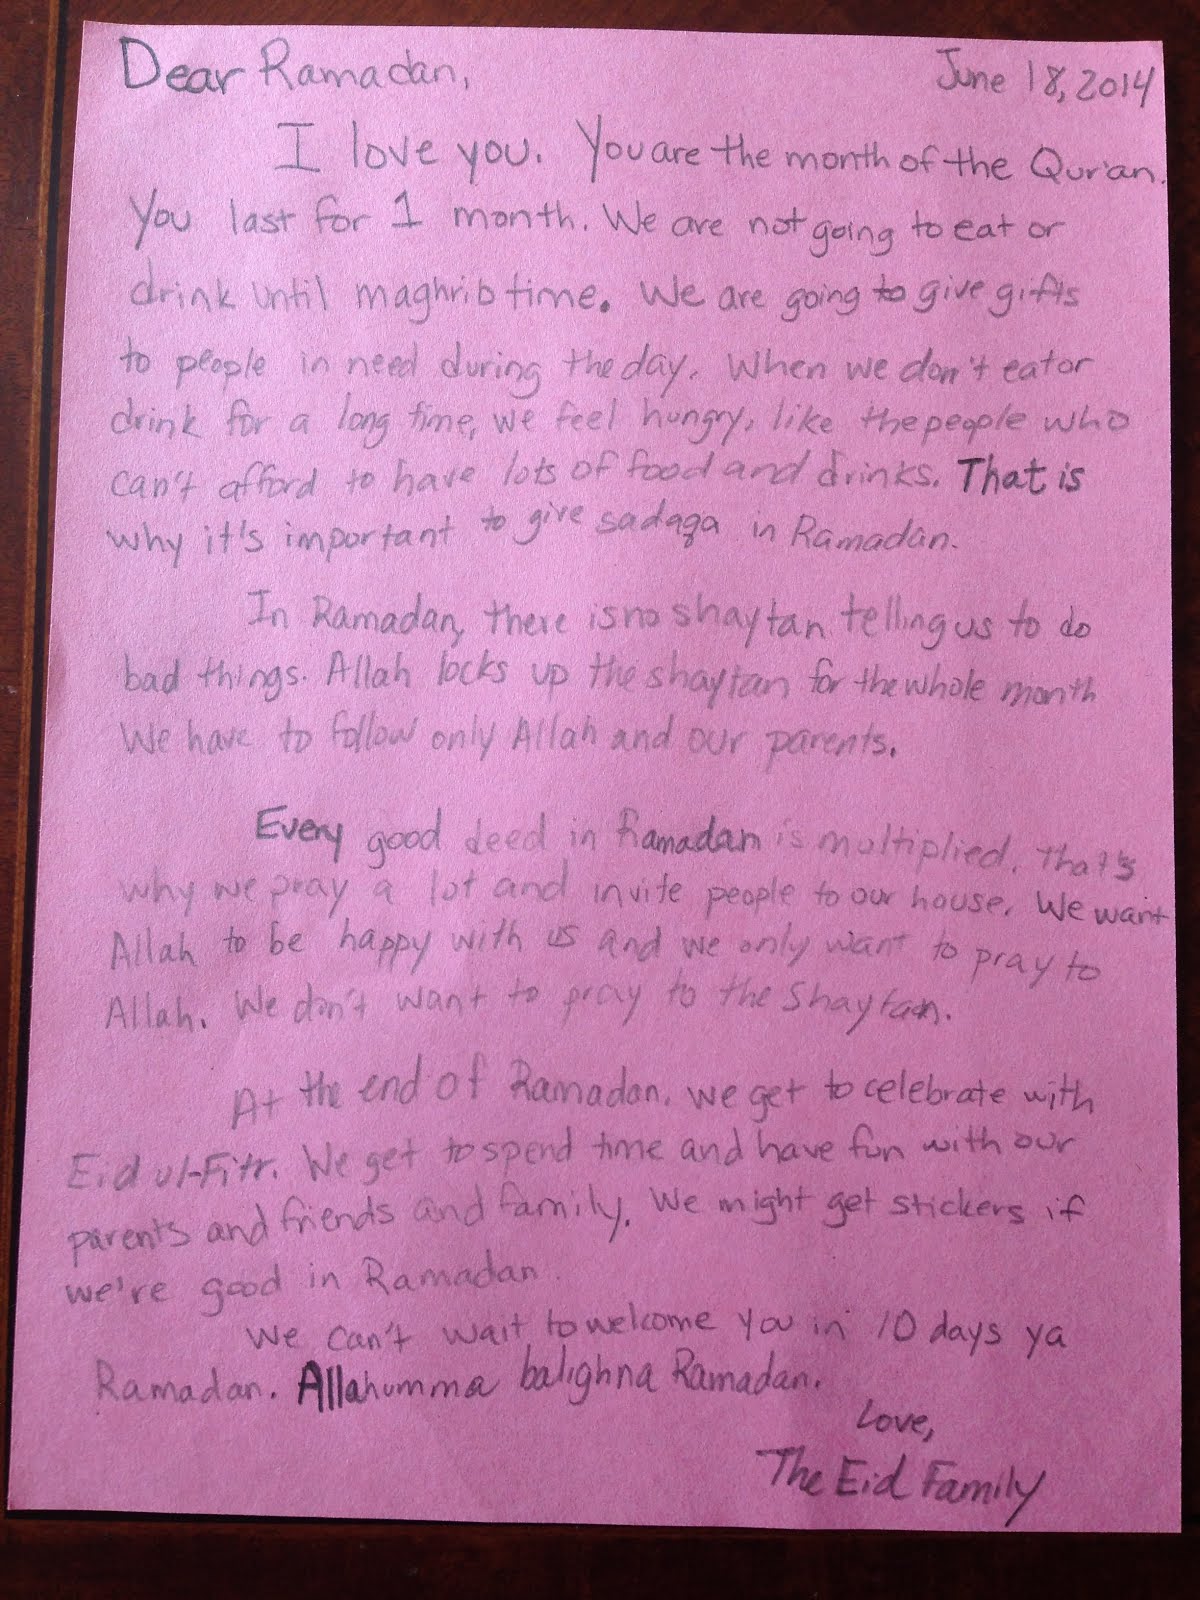 Dear Ramadan,
June 18, 2014
I love you. You are the month of the Qur'an.
You last for 1 month. We are not going to eat or
drink until maghrib time. We are going to give gifts
to people in need during the day. When we don't eat or
drink for a long time, we feel hungry, like the people who
can't afford to have lots of food and drinks. That is
why it's important to give sadaqa in Ramadan.
In Ramadan, there is no shaytan telling us to do
bad things. Allah locks up the shaytan for the whole month
We have to follow only Allah and our parents.
Every good deed in Ramadan is multiplied. That's
why we pray a lot and invite people to our house. We want
Allah to be happy with us and we only want to pray to
Allah. We don't want to pray to the Shaytan.
At the end of Ramadan, we get to celebrate with
Eid ul-Fitr. We get to spend time and have fun with our
parents and friends and family. We might get stickers if
we're good in Ramadan.
We can't wait to welcome you in 10 days ya
Ramadan. Allahumma balighna Ramadan.
Love,
The Eid Family